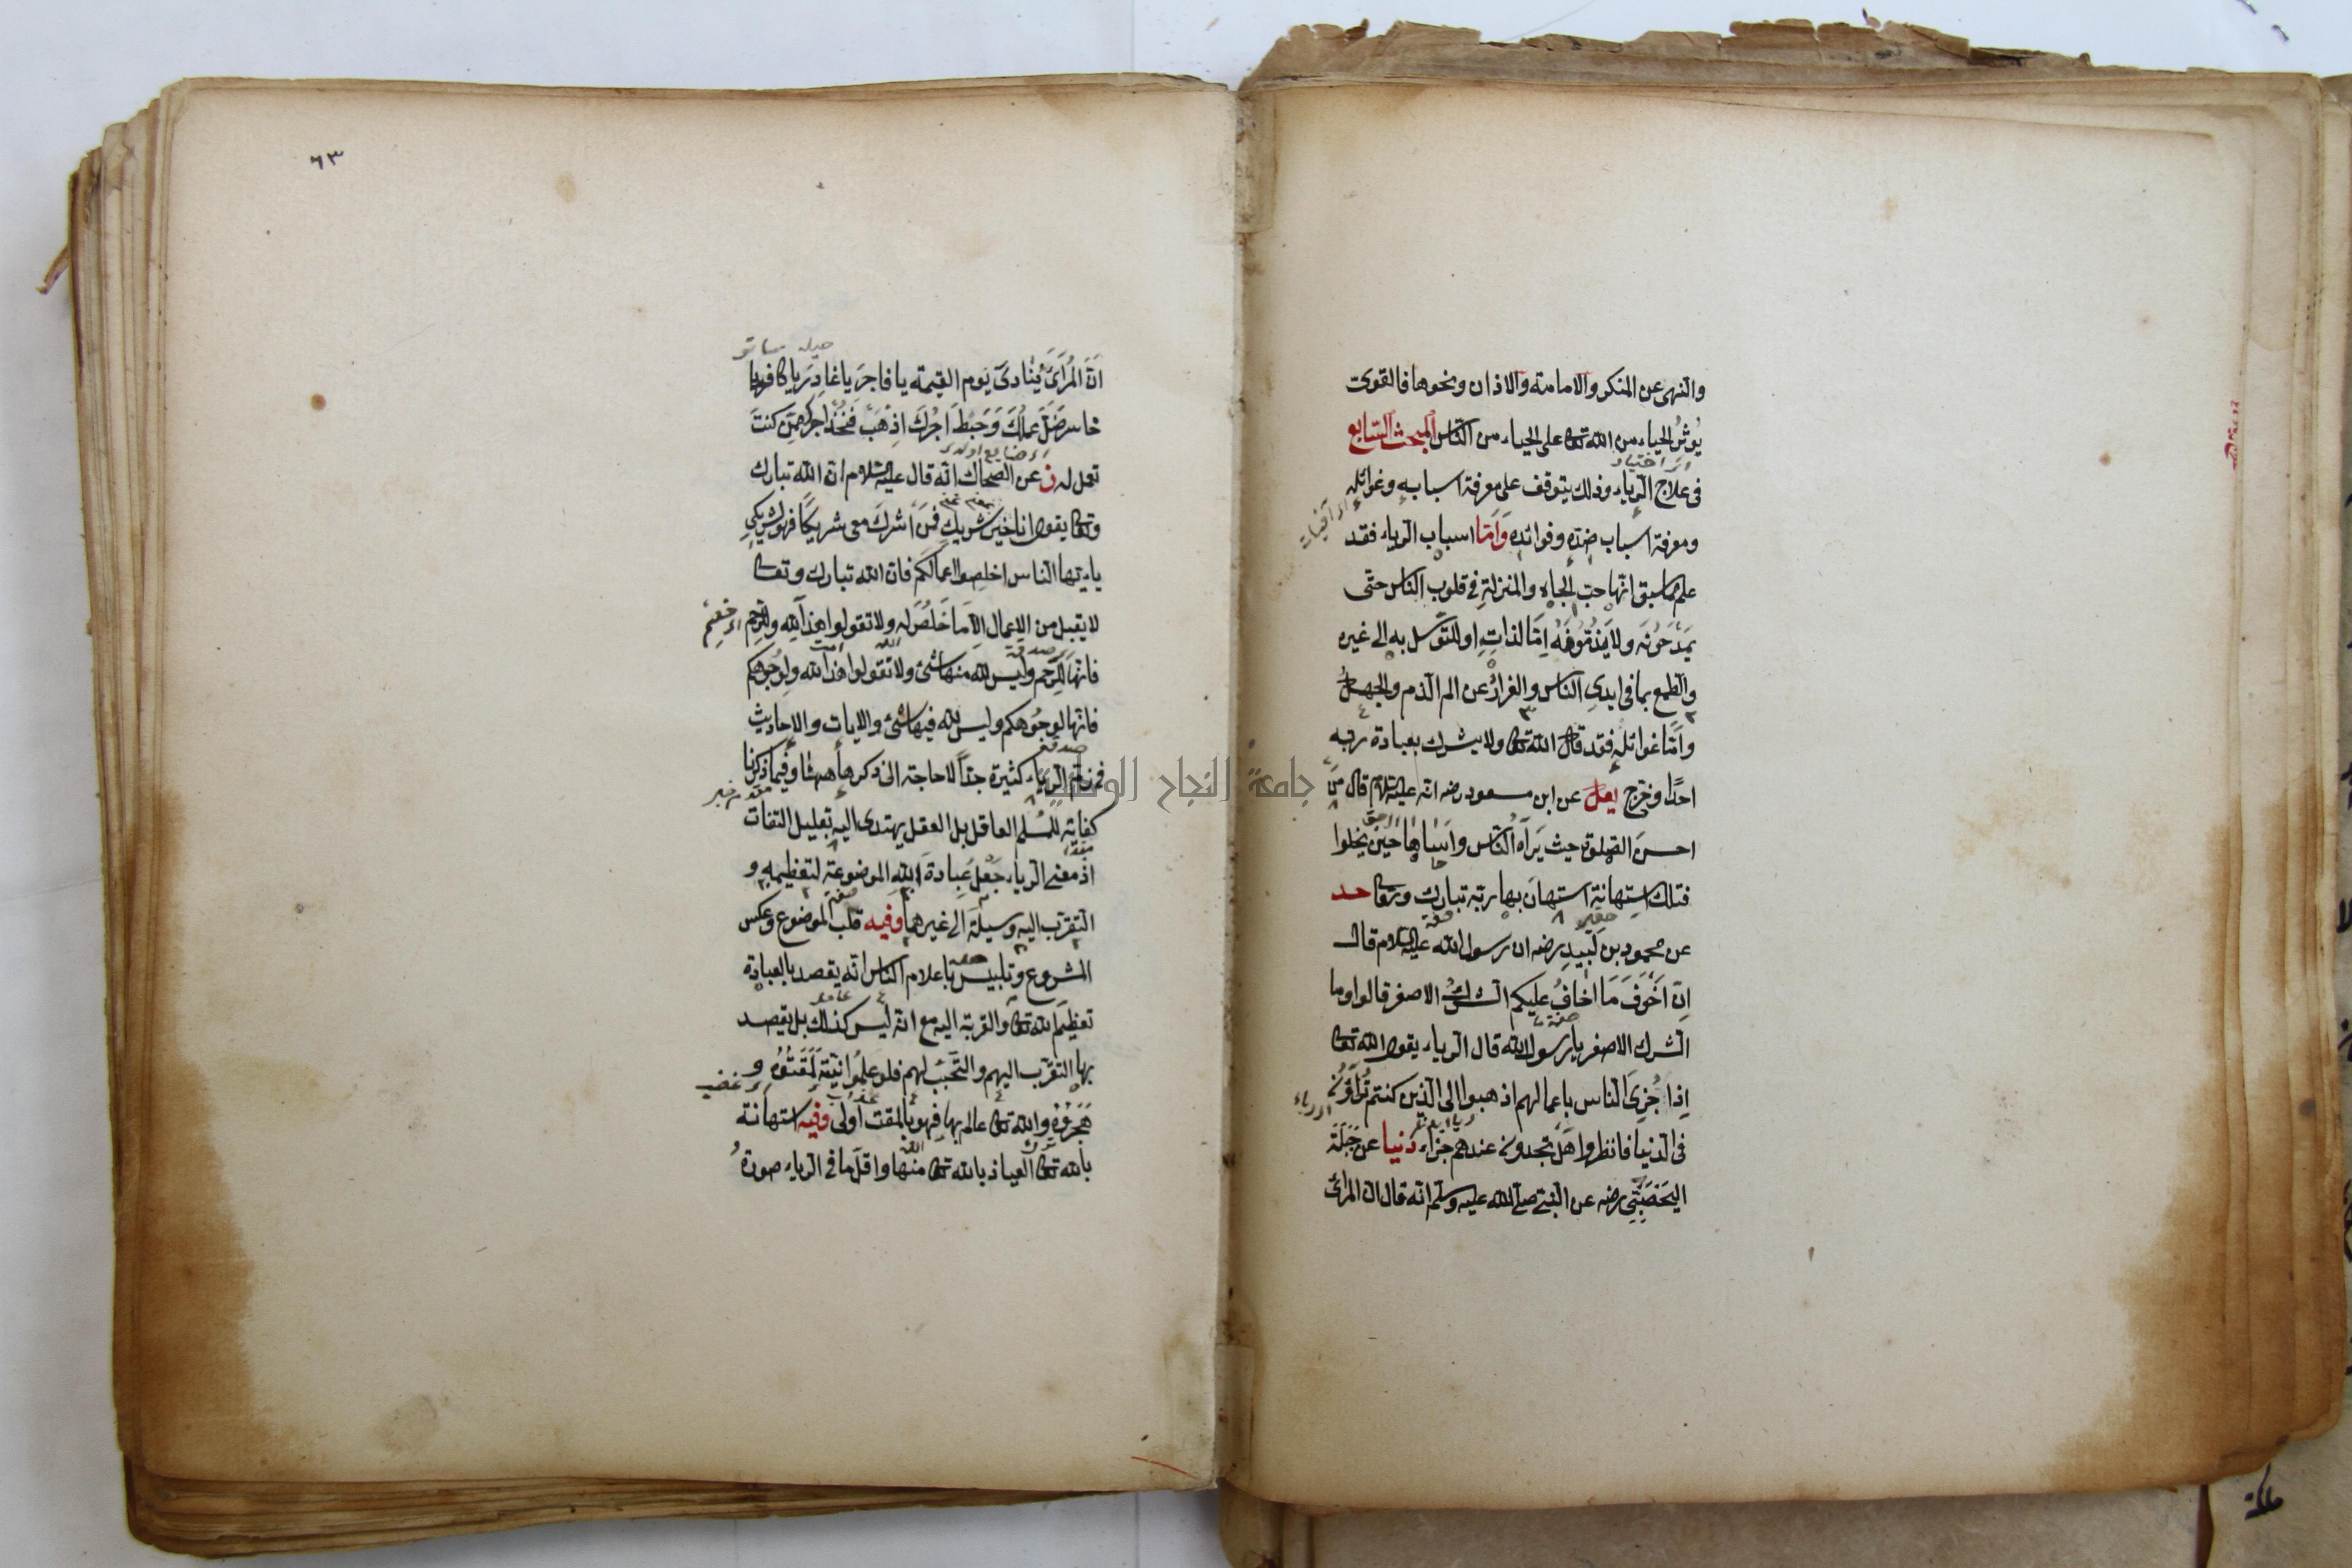 والنهى عن المنكر والامامة والاذان ونحوها فالقوى
يُوثرُ الحياء من الله تعا على الحياء من الناس المبحث السابع
فى علاج الرياء وذلك يتوقف على معرفة اسبابه وغوائله
ومعرفة اسباب ضده وفوائده وَاَمّا اسباب الرياء فقد
علم مما سبق انها حب الجاه والمنزلة فى قلوب الناس حتى
يَمدَحُونَه ولا يَذُمُّونَهُ اِمّا لذاته او للتوسّل به الى غيره
والطمع بما فى ايدى الناس والفرارُ عن الم الذم والجهلُ
واَمّا غوائله فقد قال الله تعا ولا يشرك بعبادة ربه
احدًا وخرج يعلى عن ابن مسعود رضه انه عليه السلام قال من
احسن الصلوة حيث يَراهُ الناس واَساها حين يخلوا
فتلك استهانة استهان بها ربه تبارك وتعا حد
عن محمود بن لَبيدٍ رضه ان رسول الله عليه السلام قال
اِنّ اَخوَفَ مَا اخافُ عليكم الشرك الاصغر قالوا وما
الشرك الاصغر يا رسول الله قال الرياء يقول الله تعا
اِذا جُزِىَ الناس باعمالهم اذهبوا الى الذين كنتم تُراؤن
فى الدنيا فانظروا هل تجدون عندهم جزاء دنيا عن جَبَلَة
اليَحصَبىّ رضه عن النبى صلى الله عليه وسلم انه قال ان المرائى
٦٣
انّ المُرَائىَ يُنادىَ يَوم القيمة يا فاجر يا غادر يا كافر يا
خاسر ضَلَّ عملُكَ وَحَبطَ اجرُكَ اِذهَب فَخُذ اجرك ممّن كنتَ
تعمل له ن عن الضحاك انه قال عليه السلام ان الله تبارك
وتعا يقول انا خير شريك فَمَن اَشركَ معى شريكًا فهو لشريكى
يا ايها الناس اخلِصوا اعمالَكم فان الله تبارك وتعا
لا يقبل من الاعمال الا مَا خَلُصَ له ولا تقولوا هذا لله وللرحم
فانها للرّحم وليس لله منها شئ ولا تقولوا هذا لله ولِوُجوهكم
فانها لوجوهكم وليس لله فيها شئ والايات والاحاديث
فى ذم الرياء كثيرة جدًّا لا حاجة الى ذكرها ههنا وفيما ذكرنا
كفاية للمُسلم العاقل بل العقل يهتدى اليه بقليل التفات
اذ معنى الرياء جَعلُ عِبادة الله الموضوعة لتعظيمه و
التقرّب اليه وسيلة الى غيرهما وفيه قلب الموضوع وعكس
المشروع وتلبيس باعلام الناس انه يقصد بالعبادة
تعظيمَ الله تعا والقربة اليه مع انه ليس كذلك بل يقصد
بها التقرّب اليهم والتحَبّبَ لهم فلو علِمُوا نيّتهُ لَمَقَتُوهُ و
هَجَرُوهُ والله تعا عالم بها فهو بالمقت اَولى وفيه استهانة
بالله تعا العياذ بالله تعا منها واقل ما فى الرياء صورة
جامعة النجاح الوطنية